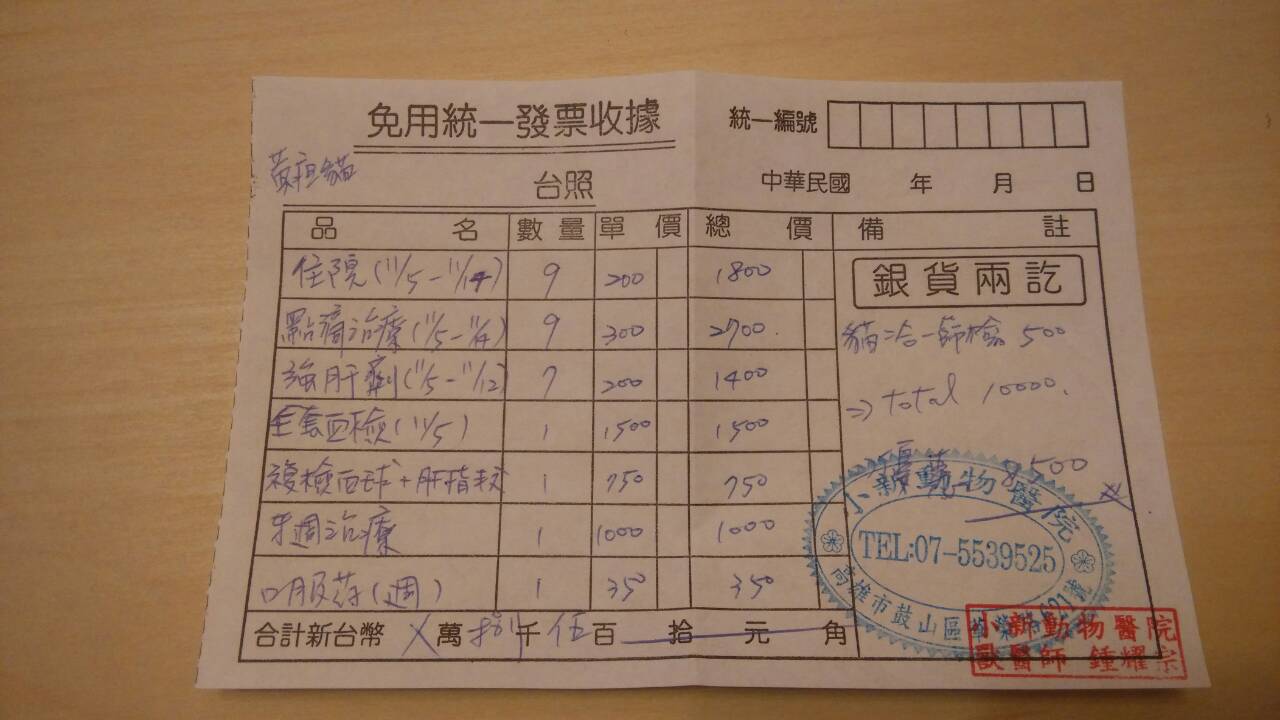 免用統一發票收據
統一編號
台照
中華民國 年 月 日
品名 數量 單價 總價 備註
住院(11/5-11/14) 9 200 1800
點滴治療(11/5-11/14) 9 300 2700
強肝劑(11/5-11/12) 7 200 1400
全套血檢(11/5) 1 1500 1500
複檢血球+肝指數 1 750 750
牙週治療 1 1000 1000
口服藥(週) 1 350 350
銀貨兩訖
貓三合一篩檢 500
⇒ total 10000.
優待 8500
合計新台幣 X萬捌千伍百 拾 元 角
小新動物醫院
TEL:07-5539525
高雄市鼓山區
小新動物醫院
獸醫師 鍾耀宗